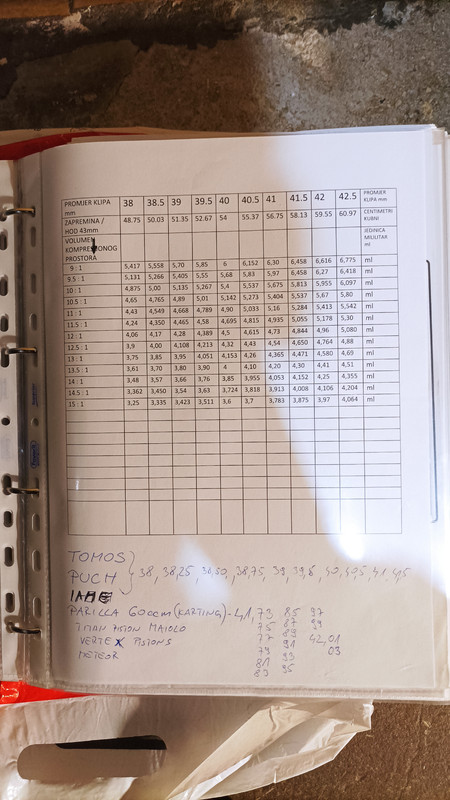 PROMJER KLIPA mm 38 38.5 39 39.5 40 40.5 41 41.5 42 42.5 PROMJER KLIPA mm
ZAPREMINA / HOD 43mm 48.75 50.03 51.35 52.67 54 55.37 56.75 58.13 59.55 60.97 CENTIMETRI KUBNI
VOLUMEN KOMPRESIONOG PROSTORA JEDINICA MILILITAR ml
9 : 1 5,417 5,558 5,70 5,85 6 6,152 6,30 6,458 6,616 6,775 ml
9.5 : 1 5,131 5,266 5,405 5,55 5,68 5,83 5,97 6,458 6,27 6,418 ml
10 : 1 4,875 5,00 5,135 5,267 5,4 5,537 5,675 5,813 5,955 6,097 ml
10.5 : 1 4,65 4,765 4,89 5,01 5,142 5,273 5,404 5,537 5,67 5,80 ml
11 : 1 4,43 4,549 4,668 4,789 4,90 5,033 5,16 5,284 5,413 5,542 ml
11.5 : 1 4,24 4,350 4,465 4,58 4,695 4,815 4,935 5,055 5,178 5,30 ml
12 : 1 4,06 4,17 4,28 4,389 4,5 4,615 4,73 4,844 4,96 5,080 ml
12.5 : 1 3,9 4,00 4,108 4,213 4,32 4,43 4,54 4,650 4,764 4,88 ml
13 : 1 3,75 3,85 3,95 4,051 4,153 4,26 4,365 4,471 4,580 4,69 ml
13.5 : 1 3,61 3,70 3,80 3,90 4 4,10 4,20 4,30 4,41 4,51 ml
14 : 1 3,48 3,57 3,66 3,76 3,85 3,955 4,053 4,152 4,25 4,355 ml
14.5 : 1 3,362 3,450 3,54 3,63 3,724 3,818 3,913 4,008 4,106 4,204 ml
15 : 1 3,25 3,335 3,423 3,511 3,6 3,7 3,783 3,875 3,97 4,064 ml
TOMOS
PUCH 38, 38,25, 38,50, 38,75, 39, 39,5, 40, 40,5, 41, 41,5
PARILLA 60ccm (KARTING) - 41,73 85 97
PISTON MAIOLO 75 87 99
VERTEX PISTONS 77 89 42,01
METEOR 79 91 03
81 93
83 95